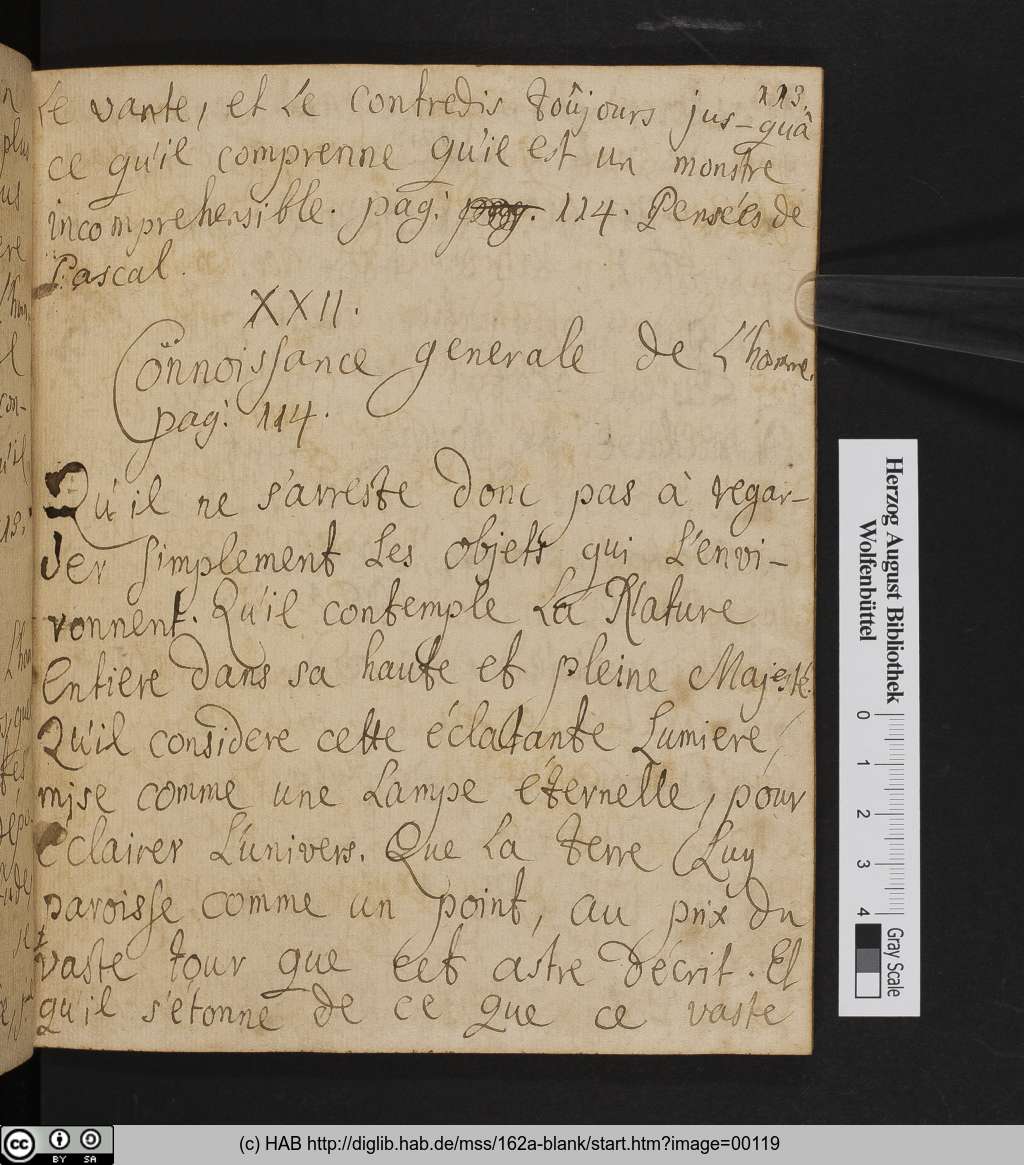 113.
Le vante, et Le contredis toûjours jus-quâ
ce qu'il comprenne qu'il est un monstre
incomprehensible. pag: 114. Pensées de
Pascal.
XXII.
Connoissance generale de L'homme.
pag: 114.
Qu'il ne s'arreste donc pas à regar-
der simplement Les objets qui L'envi-
ronnent. Qu'il contemple La Nature
Entiere dans sa haute et pleine Majesté.
Qu'il considere cette éclatante Lumiere,
mise comme une Lampe éternelle, pour
éclairer L'univers. Que La terre Luy
paroisse comme un point, au prix du
vaste tour que cet astre décrit. Et
qu'il s'étonne de ce que ce vaste
Herzog August Bibliothek
Wolfenbüttel
0 1 2 3 4
Gray Scale
cc BY SA
(c) HAB http://diglib.hab.de/mss/162a-blank/start.htm?image=00119